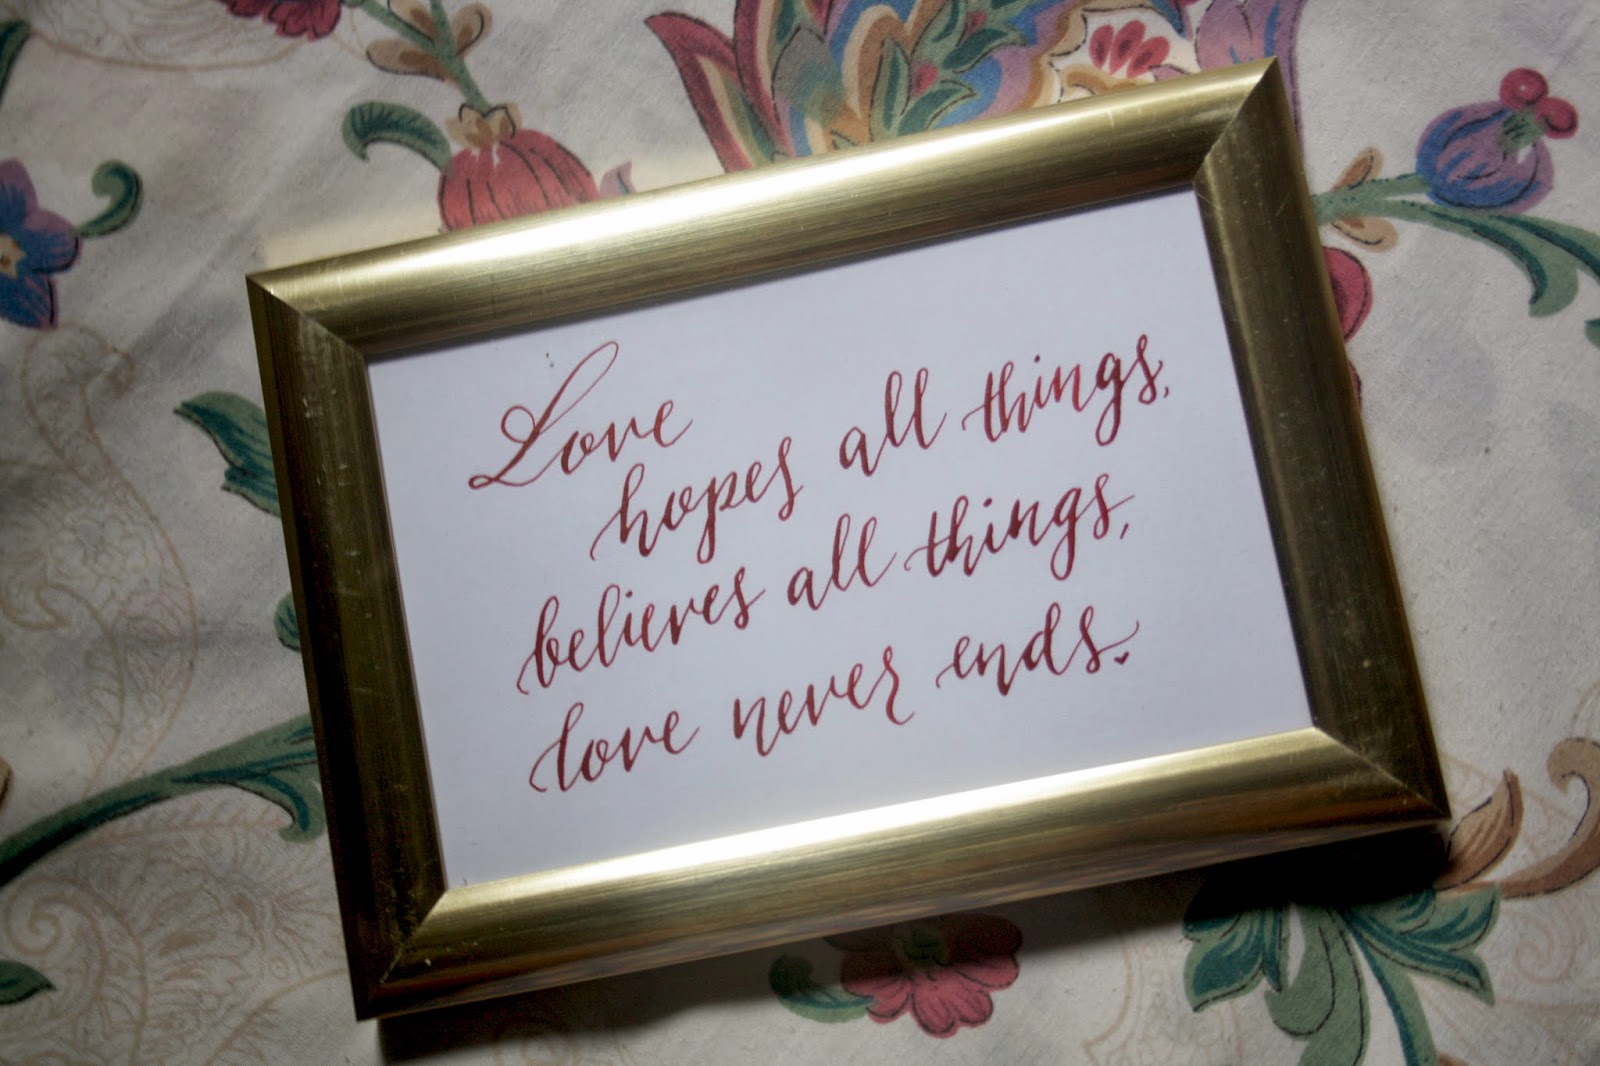 Love
hopes all things,
believes all things,
love never ends.